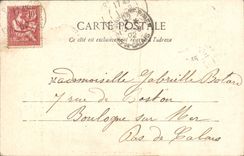 CARTE POSTALE
Ce côté est exclusivement réservé à l'adresse
02
Mademoiselle Gabrielle
7 rue de Boston
Boulogne sur Mer
Pas de Calais